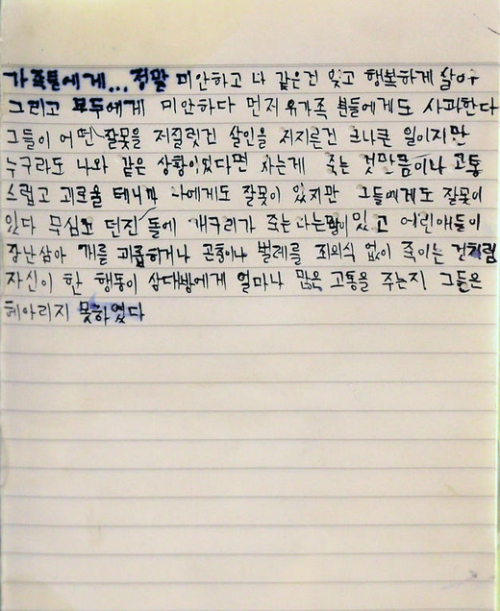 가족분에게... 정말 미안하고 나 같은건 잊고 행복하게 살아
그리고 모두에게 미안하다 먼저 유가족 분들에게도 사과한다
그들이 어떤 잘못을 저질렀건 살인을 저지른건 크나큰 일이지만
누구라도 나와 같은 상황이었다면 사는게 죽는 것만큼이나 고통
스럽고 괴로울 테니까 나에게도 잘못이 있지만 그들에게도 잘못이
있다 무심코 던진 돌에 개구리가 죽는 다는 말이 있고 어린애들이
장난삼아 개를 괴롭히거나 곤충이나 벌레를 죄의식 없이 죽이는 것처럼
자신이 한 행동이 상대방에게 얼마나 많은 고통을 주는지 그들은
헤아리지 못하였다